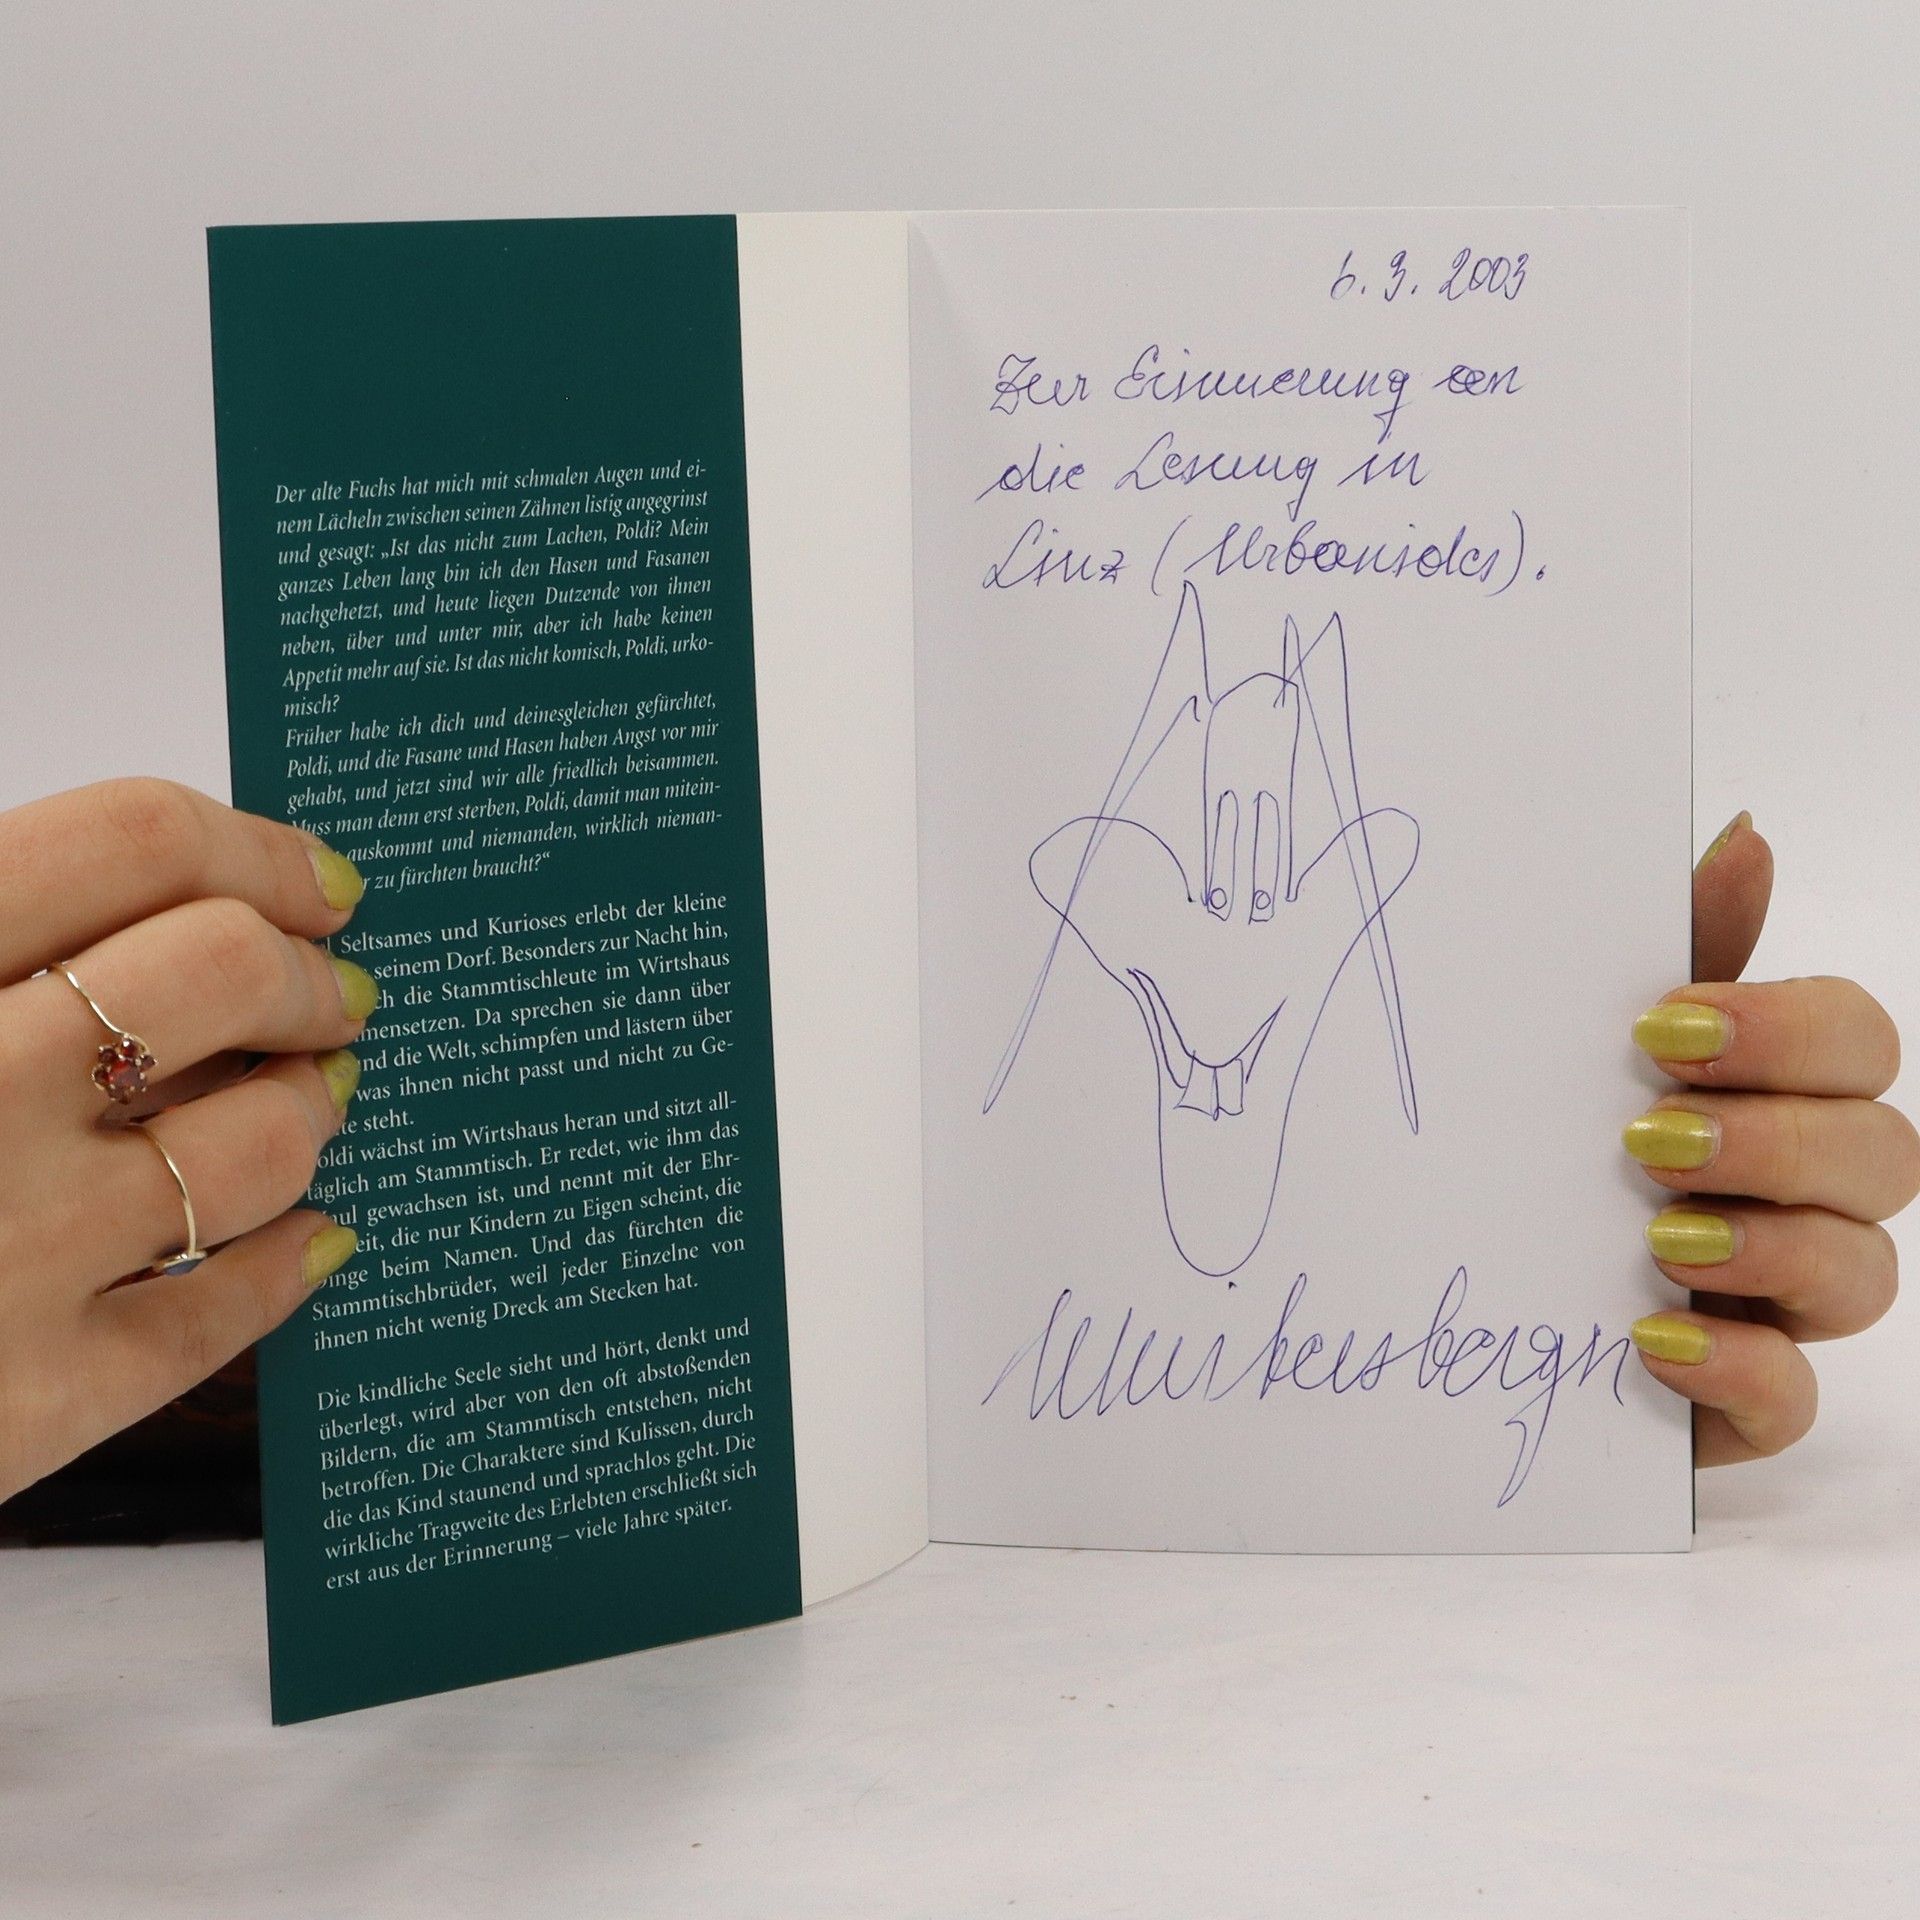 Der alte Fuchs hat mich mit schmalen Augen und ei-
nem Lächeln zwischen seinen Zähnen listig angegrinst
und gesagt: „Ist das nicht zum Lachen, Poldi? Mein
ganzes Leben lang bin ich den Hasen und Fasanen
nachgehetzt, und heute liegen Dutzende von ihnen
neben, über und unter mir, aber ich habe keinen
Appetit mehr auf sie. Ist das nicht komisch, Poldi, urko-
misch?
Früher habe ich dich und deinesgleichen gefürchtet,
Poldi, und die Fasane und Hasen haben Angst vor mir
gehabt, und jetzt sind wir alle friedlich beisammen.
Muss man denn erst sterben, Poldi, damit man mitein-
auskommt und niemanden, wirklich nieman-
zu fürchten braucht?“
Seltsames und Kurioses erlebt der kleine
seinem Dorf. Besonders zur Nacht hin,
die Stammtischleute im Wirtshaus
mensetzen. Da sprechen sie dann über
und die Welt, schimpfen und lästern über
was ihnen nicht passt und nicht zu Ge-
steht.
oldi wächst im Wirtshaus heran und sitzt all-
täglich am Stammtisch. Er redet, wie ihm das
gewachsen ist, und nennt mit der Ehr-
eit, die nur Kindern zu Eigen scheint, die
Dinge beim Namen. Und das fürchten die
Stammtischbrüder, weil jeder Einzelne von
ihnen nicht wenig Dreck am Stecken hat.
Die kindliche Seele sieht und hört, denkt und
überlegt, wird aber von den oft abstoßenden
Bildern, die am Stammtisch entstehen, nicht
betroffen. Die Charaktere sind Kulissen, durch
die das Kind staunend und sprachlos geht. Die
wirkliche Tragweite des Erlebten erschließt sich
erst aus der Erinnerung – viele Jahre später.
6. 3. 2003
Zur Erinnerung an
die Lesung in
Linz (Urbanides).